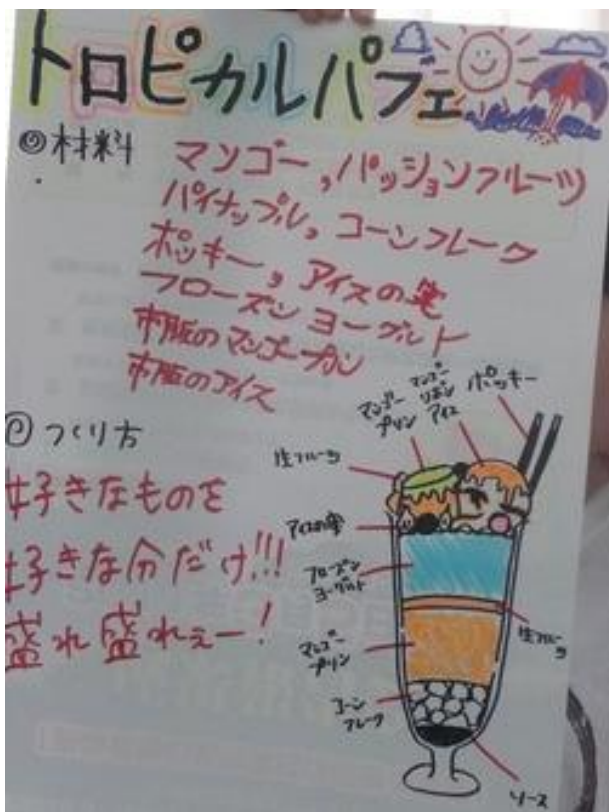 トロピカルパフェ
◎材料
マンゴー,パッションフルーツ
パイナップル,コーンフレーク
ポッキー,アイスの実
フローズンヨーグルト
市販のマンゴープリン
市販のアイス
◎つくり方
好きなものを
好きな分だけ!!!
盛れ盛れぇー!
ポッキー
マンゴー
リボン
アイス
マンゴー
プリン
生フルーツ
アイスの実
フローズン
ヨーグルト
生フルーツ
マンゴー
プリン
コーン
フレーク
ソース